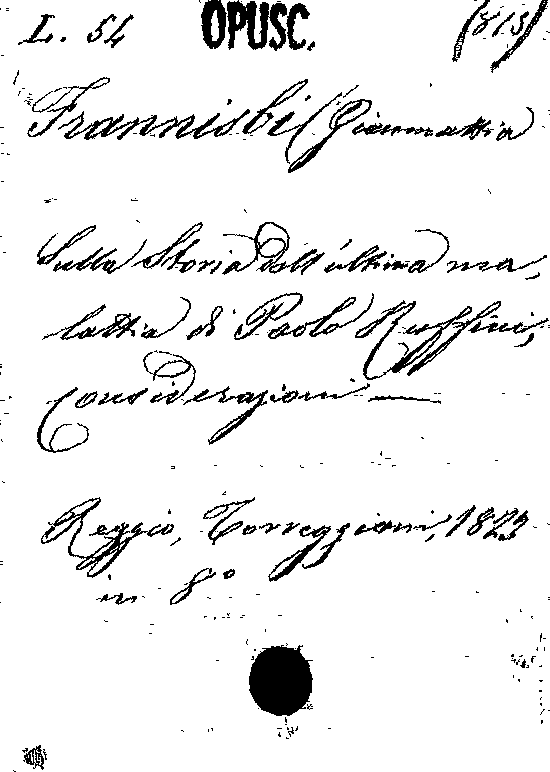 L. 54 OPUSC. (815)
Frannisbi (Gianmattia
Sulla Storia dell'ultima ma,
lattia di Paolo Ruffini,
Considerazioni —
Reggio, Torreggiani, 1823
in 8°